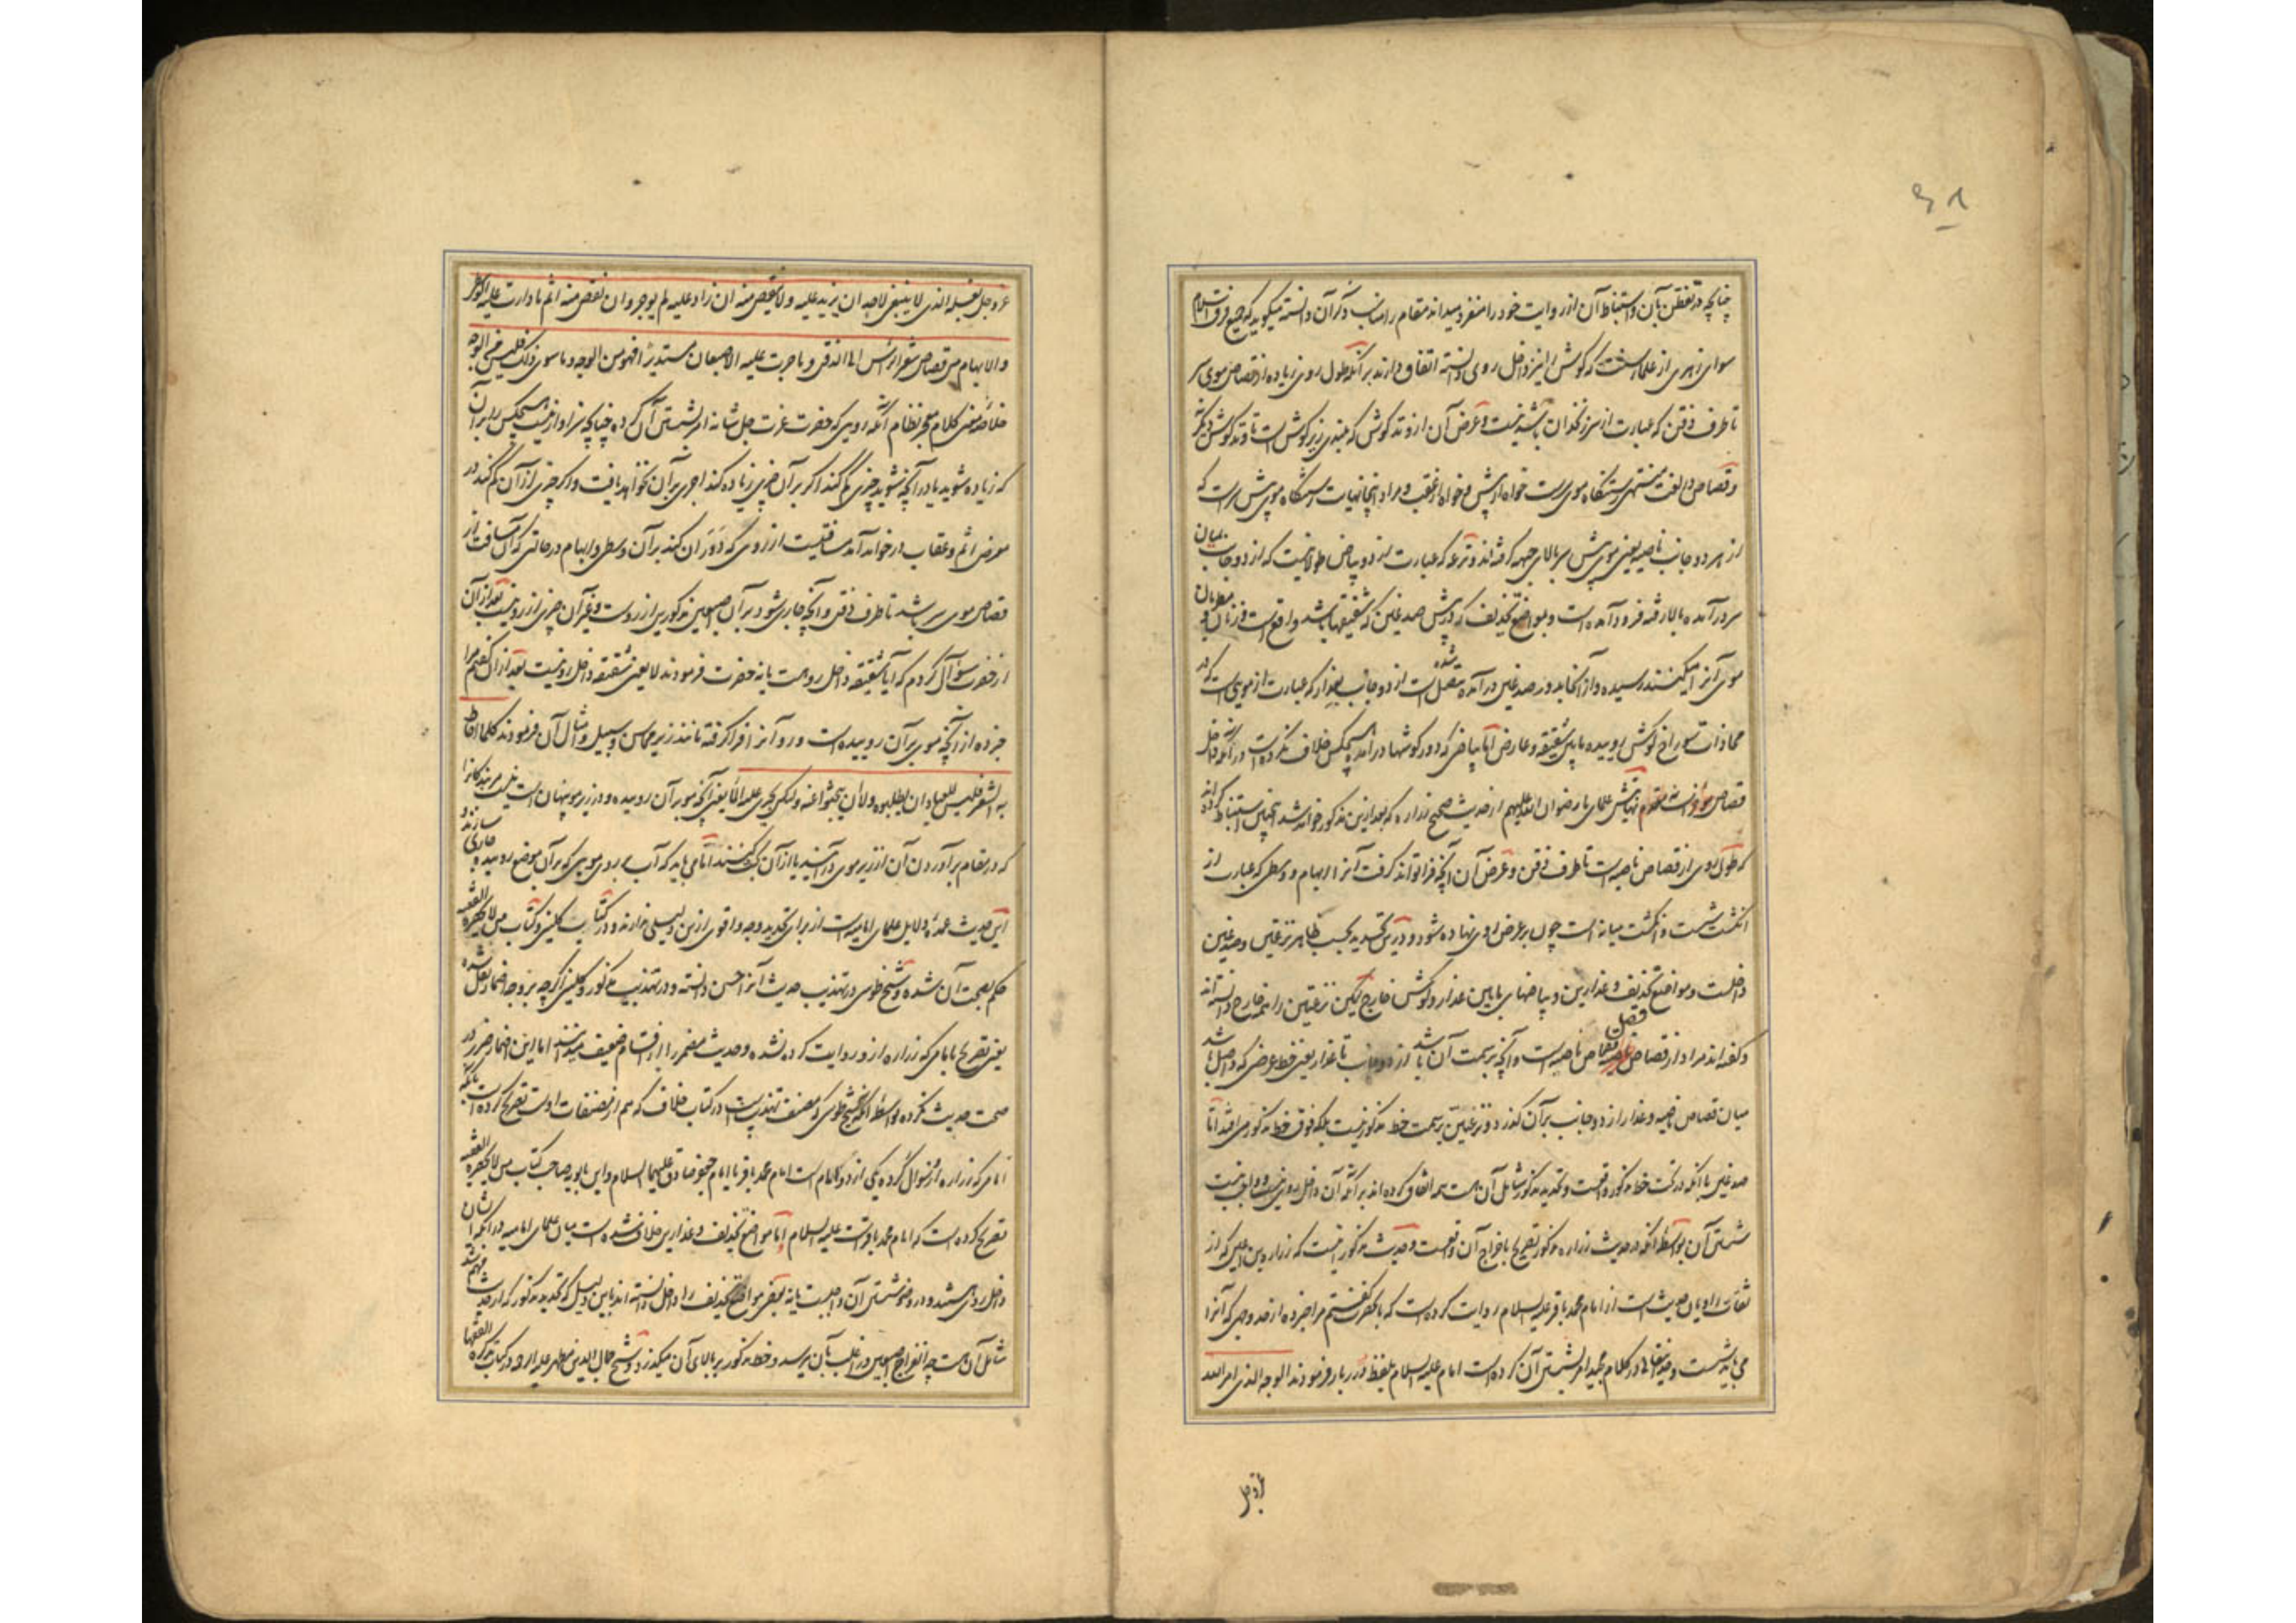 چنانچه در تفطن بآن و استنباط آن از روایت خود را منفرد میداند مقام را مناسب ذکر آن دانسته میگوید که جمیع فرق اسلام
سوای زهری از علما که گوش را نیز داخل روی دانسته اتفاق دارند بر آنکه طول روی زیاده از قصاص موی سر
تا طرف ذقن که عبارت از سر زنخدان باشد نیست و عرض آن از وتد گوش که بلندی زیر گوش است تا وتد گوش دیگر
و قصاص در لغت منتهی رستنگاه موی سرست خواه از پیش و خواه از عقب و مراد اینجا نهایت رستنگاه موی پیش سر است که
از هر دو جانب ناصیه یعنی موی پیش سر بالای جبهه گرفته اند و نزعه که عبارت از دو بیاض طولانیست که از دو جانب میان
سر در آمده بالا رفته فرود آمده است و بمواضع تحذیف که در پیش صدغین که شقیقهها باشد واقع است و زنان و مطربان
موی آنرا میکنند رسیده و از آنجا بدور صدغین در آمده متصل شده است از دو جانب بعذار که عبارت از موییست که در
محاذات سوراخ گوش روییده پایین شقیقه و عارض اما بیاضی که دور گوشها در آمده هیچکس خلاف نکرده است در آنکه داخل
قصاص علمای ما رضوان الله علیهم از حدیث صحیح زراره که بعد ازین مذکور خواهد شد چنین استنباط کرده اند
که طول روی از قصاص ناصیه است تا طرف ذقن و عرض آن آنچه فرا تواند گرفت آنرا ابهام و وسطی که عبارت از
انگشت شست و انگشت میانه است چون بر عرض روی نهاده شود و درین تحدید بحسب ظاهر نزعتین و صدغین
داخلست و مواضع تحذیف و عذارین و بیاضهای مابین عذار و گوش خارج لیکن نزعتین را نیز خارج دانسته اند
و گفته اند مراد از قصاص قصاص ناصیه است و آنچه بر سمت آن باشد از دو جانب تا عذار یعنی خط عرضی که واصل باشد
میان قصاص ناصیه و عذار از دو جانب بر آن گذرد و نزعتین بر سمت خط مذکور نیست بلکه فوق خط مذکور می افتد اما
صدغین با آنکه در تحت خط مذکور واقعست و تحدید مذکور شامل آن هست همه اتفاق کرده اند بر آنکه آن داخل روی نیست و واجب نیست
شستن آن بواسطه آنکه در حدیث زراره مذکور تصریح باخراج آن واقعست و حدیث مذکور اینست که زراره بن اعین که از
ثقات راویان حدیث است از امام محمد باقر علیه السلام روایت کرده است که بآنحضرت گفتم مرا خبر ده از حد وجهی که آنرا
می باید شست و حقتعالی در کلام مجید امر بشستن آن کرده است امام علیه السلام بلفظ درربار فرمودند الوجه الذی امر الله
عز و جل
عز و جل بغسله الذی لا ینبغی لاحد ان یزید علیه و لا ینقص منه ان زاد علیه لم یوجر و ان نقص منه اثم ما دارت علیه الوسطی
و الابهام من قصاص شعر الرأس الی الذقن و ما جرت علیه الاصبعان مستدیرا فهو من الوجه و ما سوی ذلک فلیس من الوجه
خلاصه معنی کلام معجز نظام آنکه رویی که حضرت عزت جل شانه امر بشستن آن کرده چنانچه سزاوار نیست هیچکس را بر آن
که زیاده شوید یا در آنچه شوید چیزی کم کند اگر بر آن چیزی زیاده کند اجری بر آن نخواهد یافت و اگر چیزی از آن کم کند در
معرض اثم و عقاب در خواهد آمد مسافتیست از روی که دوران کند بر آن وسطی و ابهام در حالتی که آن مسافت از
قصاص موی سر باشد تا طرف ذقن و آنچه جاری شود بر آن اصبعین مذکورین از روست و غیر آن چیزی از رو نیست بعد از آن
از حضرت سؤال کردم که آیا شقیقه داخل رو هست یا نه حضرت فرمودند لا یعنی شقیقه داخل رو نیست بعد از آن گفتم مرا
خبر ده از آنچه موی بر آن روییده است و رو آنرا فرا گرفته مانند زیر محاسن و سبیل و امثال آن فرمودند کلما احاط
به الشعر فلیس للعباد ان یطلبوه و لا ان یبحثوا عنه و لکن یجری علیه الماء یعنی آنچه مو بر آن روییده و در زیر مو پنهان است نیست مر بندگانرا
که در مقام بر آوردن آن از زیر موی در آیند یا از آن بحث کنند اما می باید که آب بر روی مویی که بر آن موضع روییده جاری سازند و
این حدیث عمده دلایل علمای امامیه است از برای تحدید وجه و اقوی ازین دلیلی ندارند و در کتاب کلینی و کتاب من لا یحضره الفقیه
حکم بصحت آن شده و شیخ طوسی در تهذیب حدیث آنرا حسن دانسته و در تهذیب مذکور و کلینی اگرچه بر وجه اضمار نقل شده
یعنی تصریح بامامی که زراره ازو روایت کرده نشده و حدیث مضمر را از اقسام ضعیف میدانند اما این اضمار ضرر در
صحت حدیث نکرده بواسطه آنکه شیخ طوسی که مصنف تهذیب است در کتاب خلاف که هم از مصنفات اوست تصریح کرده است بآنکه
امامی که زراره ازو سؤال کرده یکی از دو امام است امام محمد باقر یا امام جعفر صادق علیهما السلام و ابن بابویه صاحب کتاب من لا یحضره الفقیه
تصریح کرده است که امام محمد باقرست علیه السلام اما مواضع تحذیف و عذارین خلاف شده است میان علمای امامیه در آنکه ایشان
داخل روی هستند و در وضو شستن آن واجبست یا نه بعضی مواضع تحذیف را داخل دانسته اند باین دلیل که تحدید مذکور که از حدیث فهم شد
شامل آن هست چه انفراج اصبعین در اغلب بآن میرسد و خط مذکور بر بالای آن میگذرد و شیخ جمال الدین مطهر علیه الرحمه در کتاب تذکرة الفقها